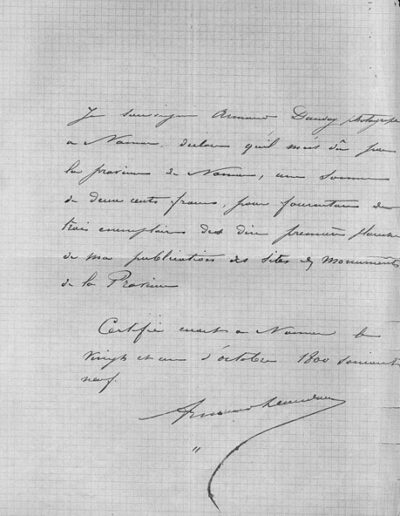 Je soussigné Armand Dandoy photographe
à Namur, déclare qu'il m'est dû par
la province de Namur, une somme
de deux cents francs, pour fourniture de
trois exemplaires des dix premières planches
de ma publication des Sites & Monuments
de la Province
Certifié exact à Namur le
vingt et un d'octobre 1800 soixante
neuf.
Armand Dandoy
"